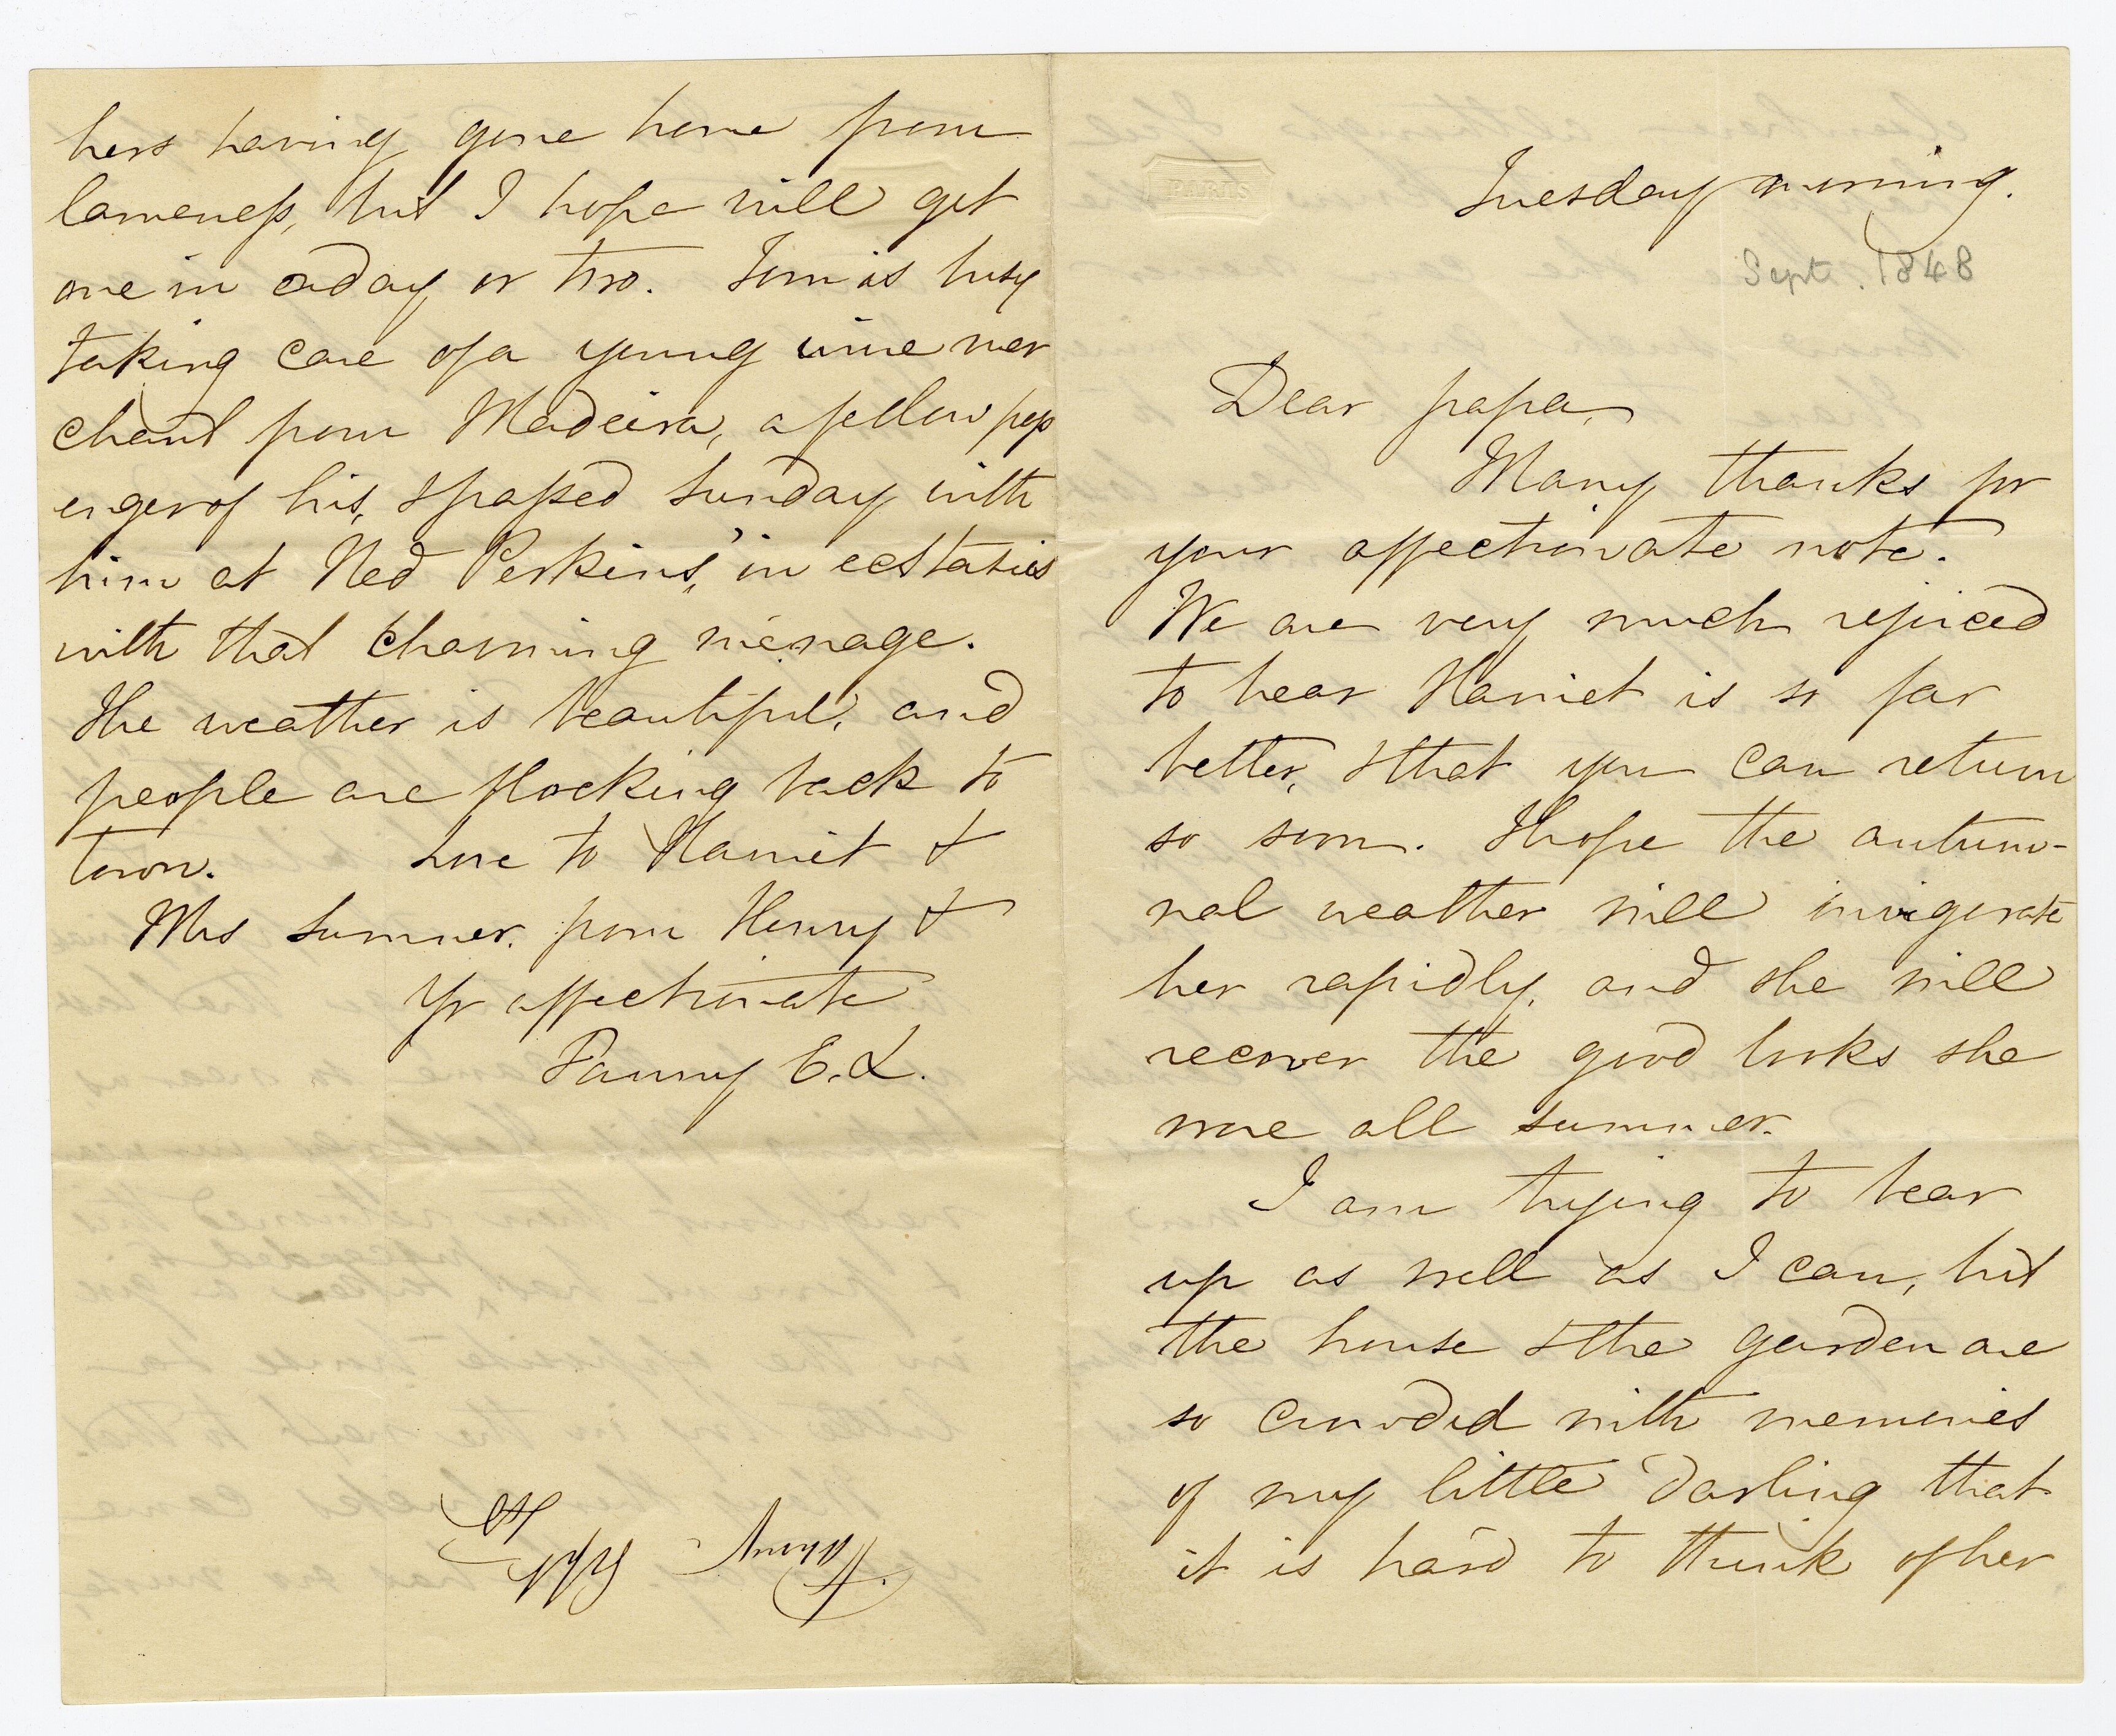 PARIS
Tuesday morning.
Sept. 1848
Dear papa,
Many thanks for
your affectionate note.
We are very much rejoiced
to hear Harriet is so far
better, & that you can return
so soon. I hope the autum-
nal weather will invigorate
her rapidly, and she will
recover the good looks she
wore all summer.
I am trying to bear
up as well as I can, but
the house & the garden are
so crowded with memories
of my little darling that
it is hard to think of her
hers having gone home from
lameness, but I hope will get
one in a day or two. Tom is busy
taking care of a young wine mer
chant from Madeira, a fellow pass
enger of his, & passed Sunday with
him at Ned Perkins', in ecstasies
with that charming ménage.
The weather is beautiful, and
people are flocking back to
town. Love to Harriet &
Mrs Sumner from Henry &
Yr affectionate
Fanny E. L.